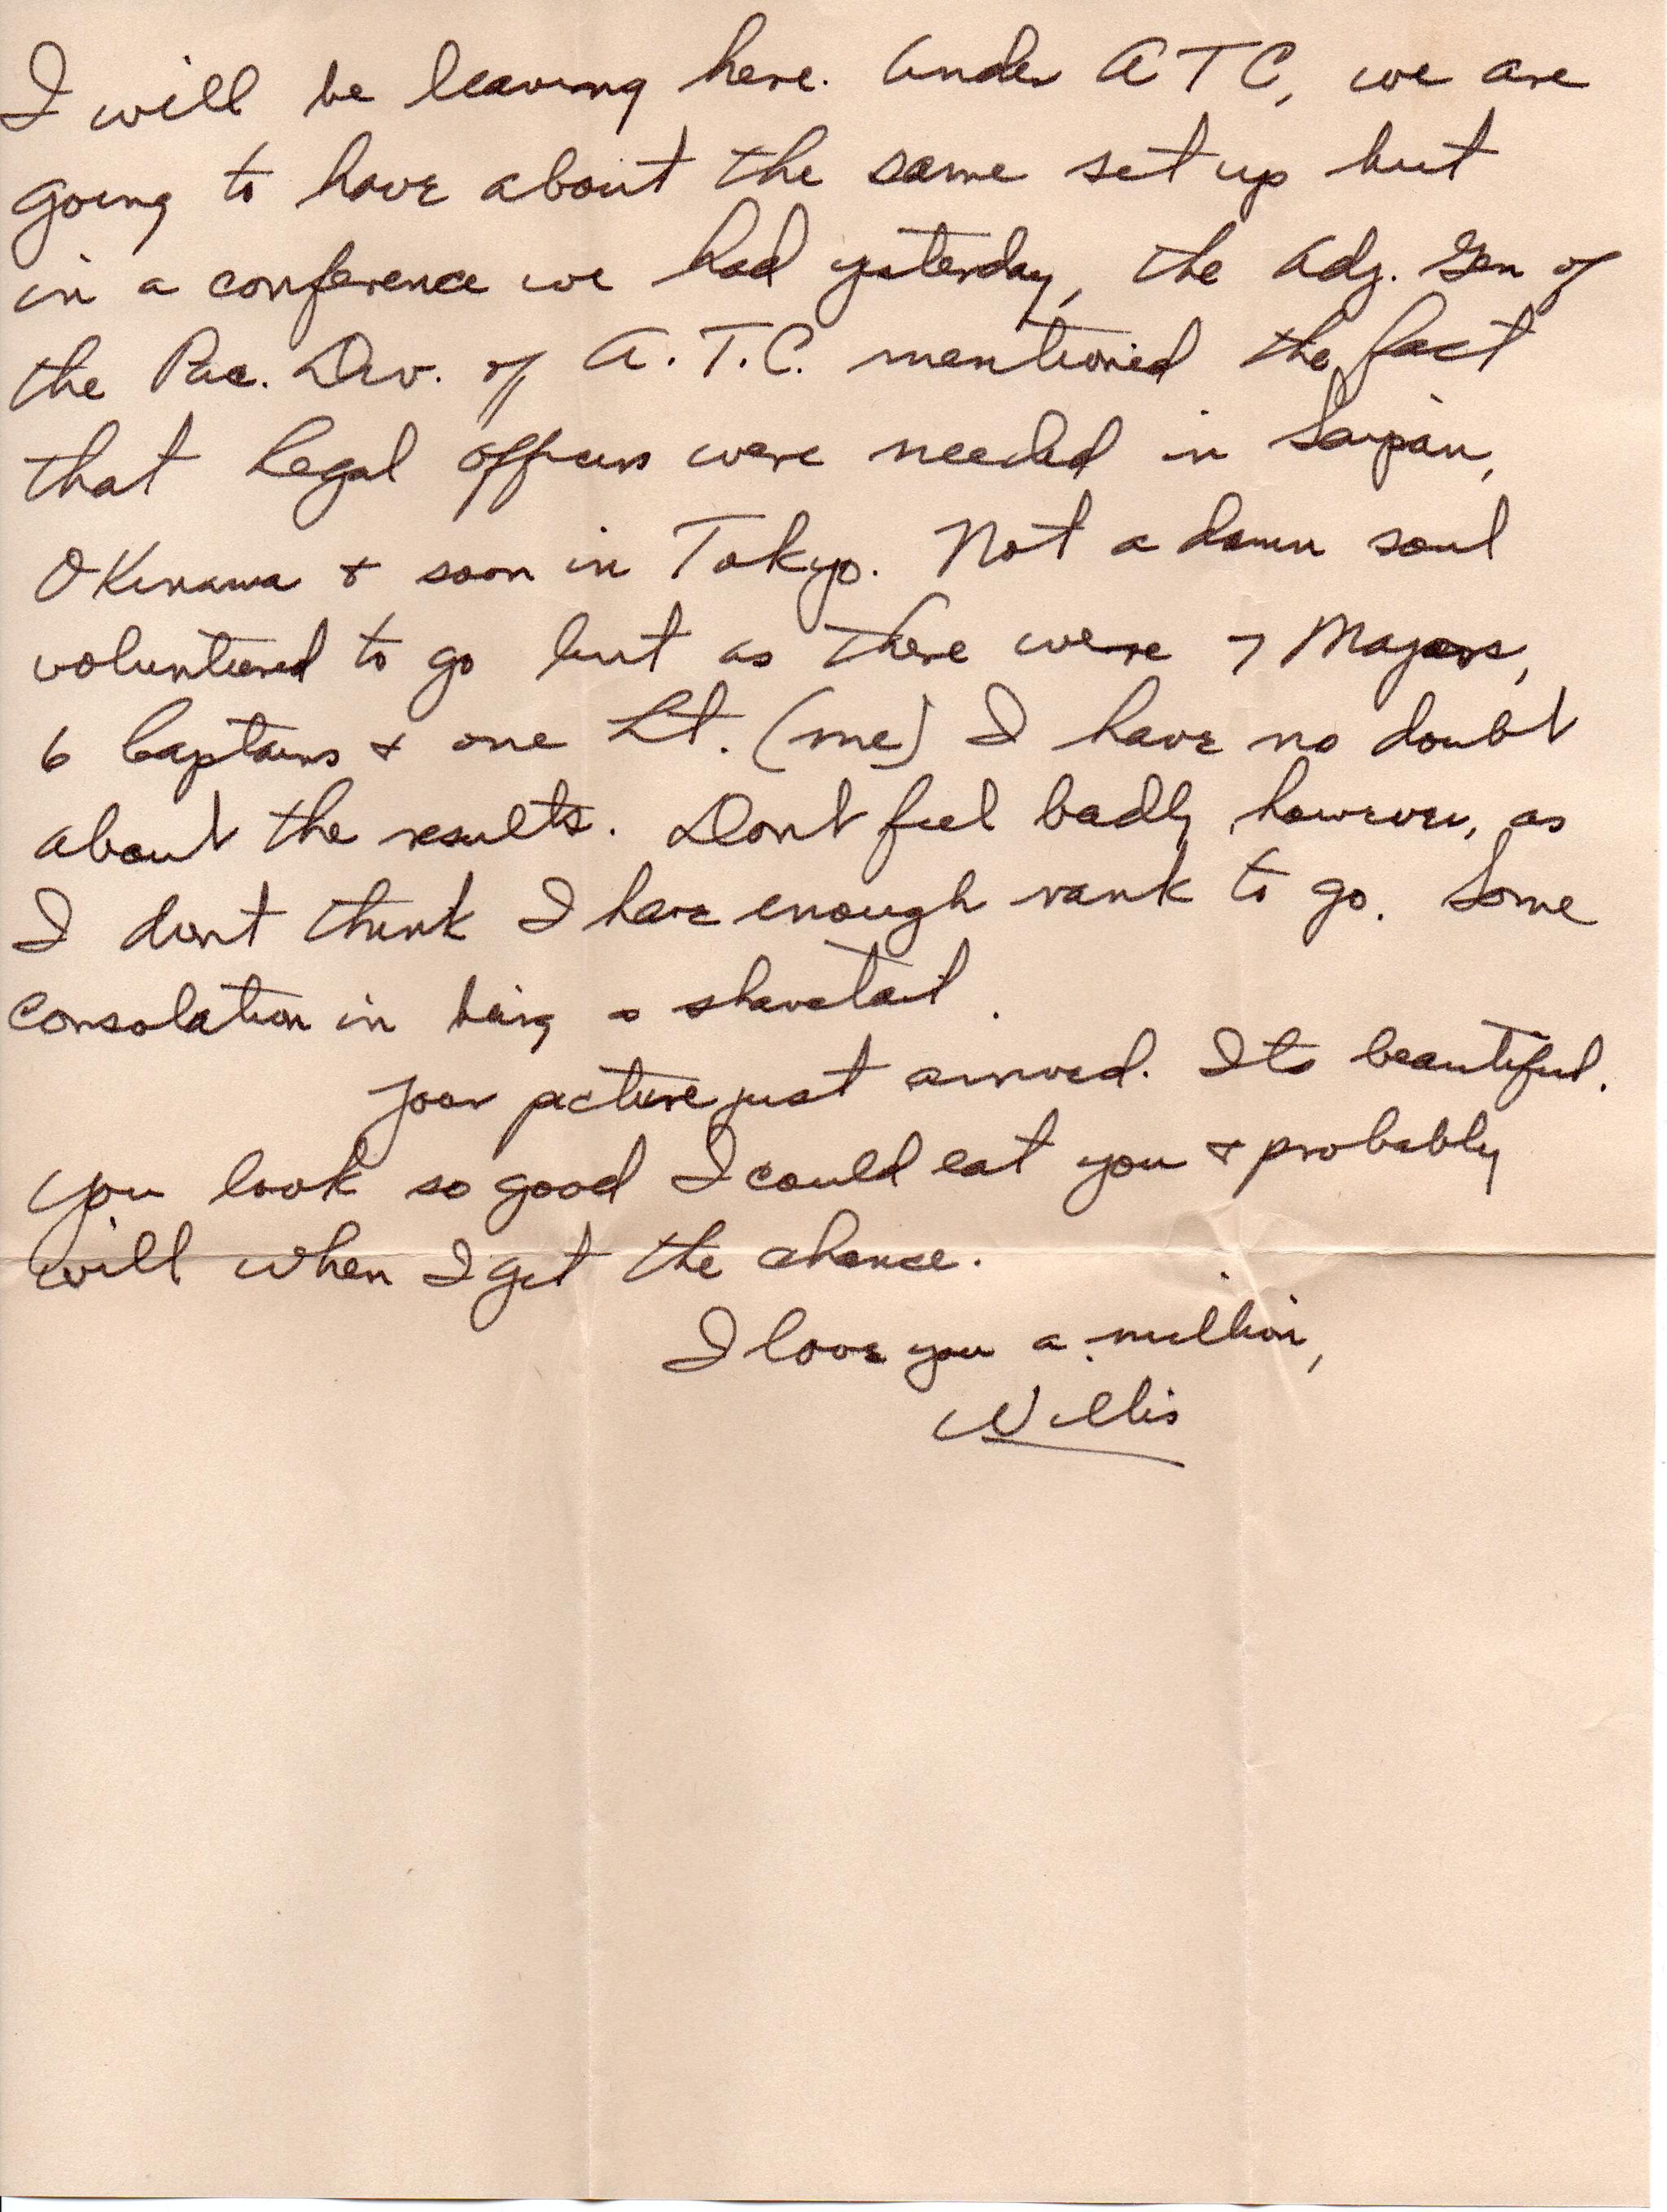 I will be leaving here. Under ATC, we are
going to have about the same set up but
in a conference we had yesterday, the Adj. Gen of
the Pac. Div. of A.T.C. mentioned the fact
that Legal officers were needed in Saipan,
Okinawa & soon in Tokyo. Not a damn soul
volunteered to go but as there were 7 Majors,
6 Captains & one Lt. (me) I have no doubt
about the results. Dont feel badly, however, as
I dont think I have enough rank to go. Some
consolation in being a shavetail.
Your picture just arrived. Its beautiful.
You look so good I could eat you & probably
will when I get the chance.
I love you a million,
Willis